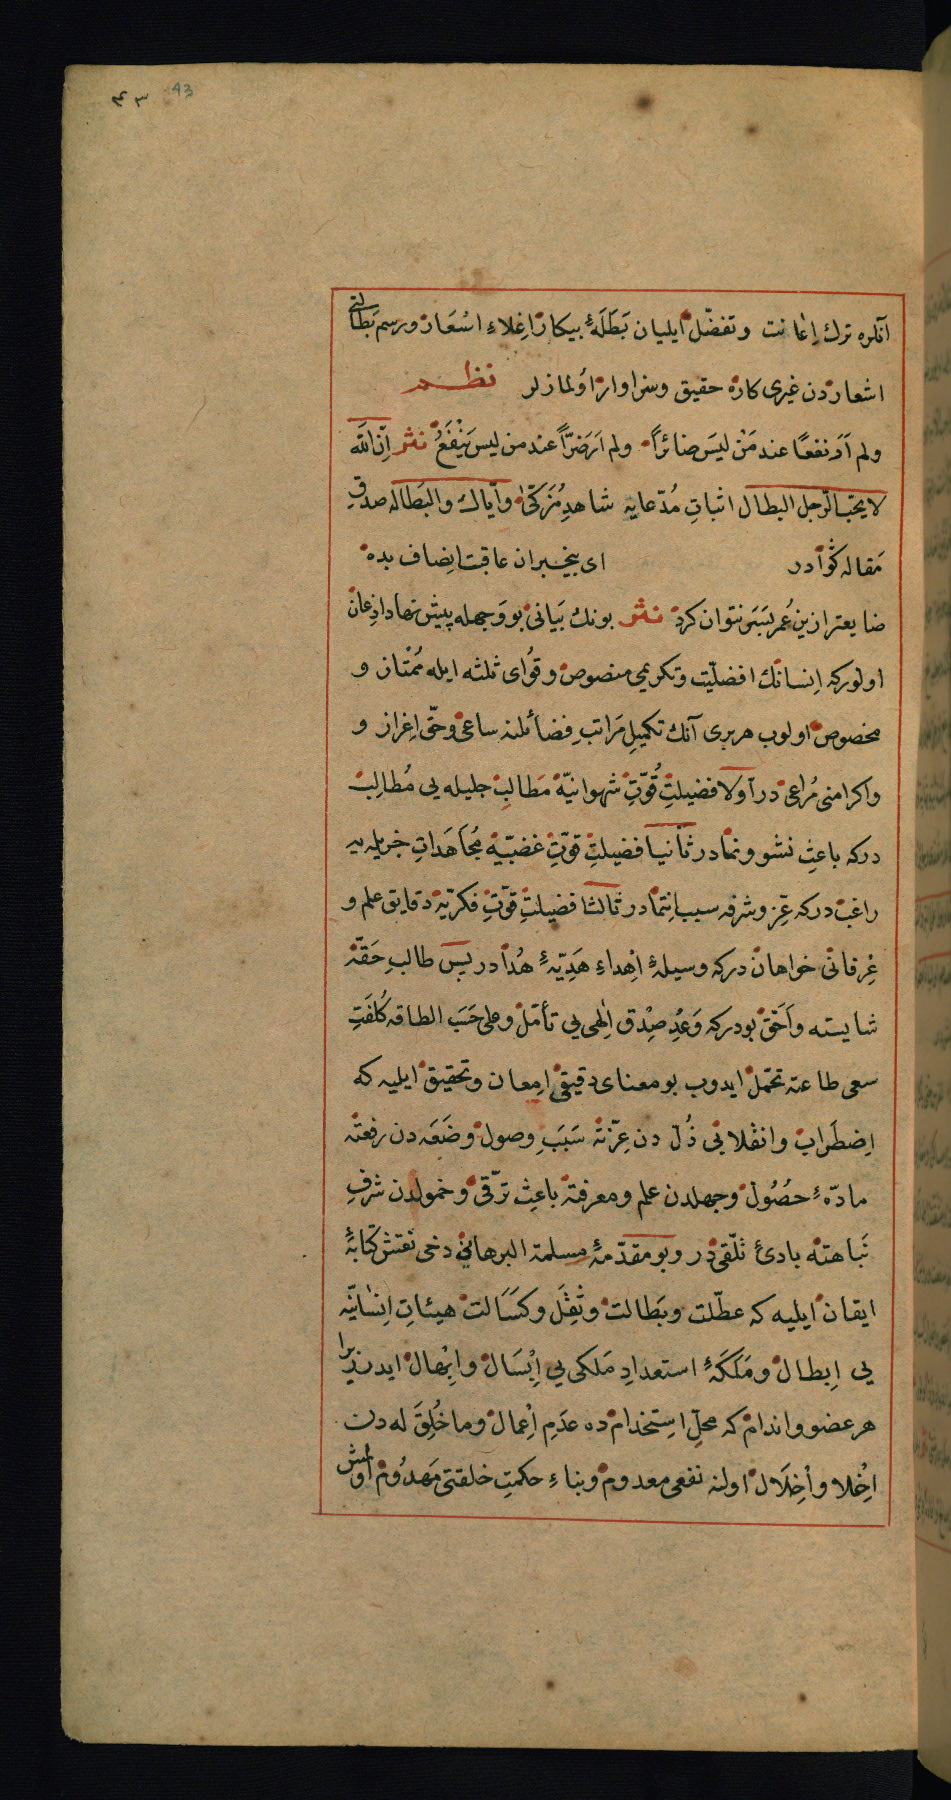 ٤٣ 43
آنلره ترك اِعانت وتفضّل ايليان بَطَلَهٔ بيكار اِغلاءِ اسْعَار ورسم بَطالتى
اشعاردن غيرى كاره حقيق وسزاوار اولمازلر نظــم
ولم اَرَ نفعًا عند مَنْ ليسَ ضائراً ولم اَرَ ضرّاً عند من ليس يَنْفَعُ نثر اِنّ اللّه
لا يحبّ الرّجل البطال اثباتِ مُدّعايه شاهدِ مُزَكّىٰ واِيّاك والبَطاله صدقِ
مَقاله كُوآدر اى بيخبران عاقبت انصاف بده
ضايعتر ازين عُمر بسَر نتوان كرد نثر بونك بَيانى بووجهله پيش نهاد اذعان
اولوركه اِنسانك افضليّت وتكريمى منصوص وقُواى ثلثه ايله مُمْتاز و
مخصوص اولوب هربرى آنك تكميلِ مَراتبِ فضائلنه ساعى وحتّى اِعزاز و
واكرامنى مُراعى در اَوّلا فضيلتِ قُوّتِ شهوانيّه مَطالبِ جليله يى مُطالِب
دركه باعثِ نشو ونما در ثانيا فضيلتِ قوّتِ غضبيّه مُجاهَداتِ جزيله يه
راغب دركه عِزّ وشرفه سبب اِنتما در ثالثا فضيلتِ قوّتِ فكريّه دقايق علم و
عِرفانى خواهان دركه وسيلهٔ اِهداءِ هَديّهٔ هُدا در پس طالبِ حَقّه
شايسته واَحَقّ بودركه وَعْدِ صِدْق الٰهى يى تأمّل وعلى حَسَب الطاقه كُلفَتِ
سعى طاعته تحمّل ايدوب بو معناى دقيقى اِمعان وتحقيق ايليه كه
اِضطَراب وانقلابى ذُلّ دن عِزّته سَبَبِ وصول وضَعَه دن رفعته
مادّهٔ حصُول وجهلدن علم ومعرفته باعثِ ترقّى وخمولدن شرفِ
نَباهته بادئ تلقّى در وبو مقدّمهٔ مسلمة البرهانى دخى نقش كتابهٔ
ايقان ايليه كه عطلت وبَطالت وثِقَل وكسَالت هيئاتِ اِنسانيّه
يى اِبطال ومَلَكَهٔ استعدادِ مَلكى يى اِبْسَال واِبْهال ايدر زيرا
هر عضو واندام كه محلّ استخدامْ ده عدَمِ اِعمال وما خُلِقَ له دن
اِخْلا واِخِلَال اولنه نفعى معدوم وبناءِ حكمتِ خلقتى مَهدُوم اولمش